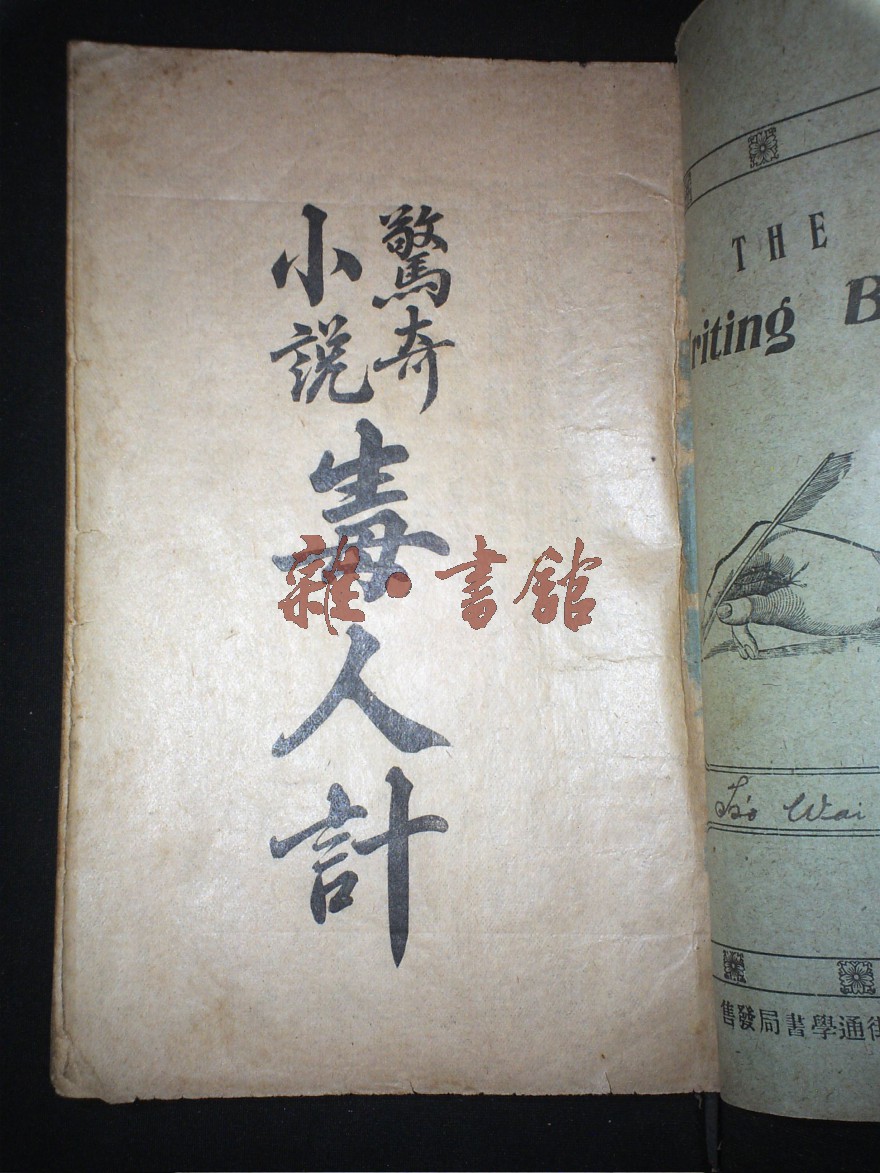 驚奇
小説
毒人計
雜·書館
THE
riting B
Tso Wai
街通學書局發售